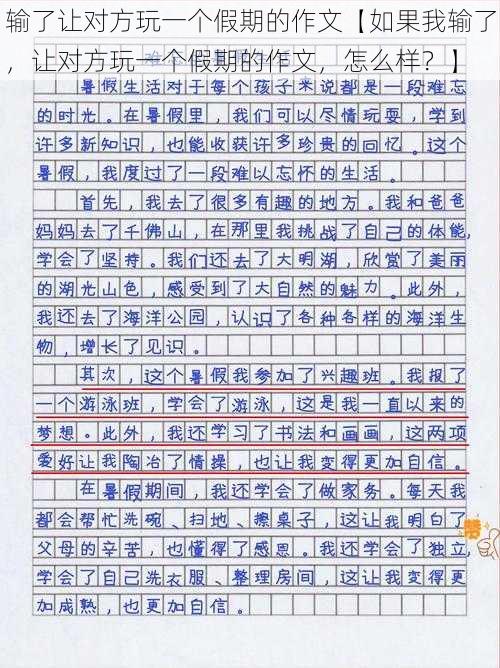 输了让对方玩一个假期的作文【如果我输了
，让对方玩一个假期的作文，怎么样？】
暑假生活对于每个孩子来说都是一段难忘
的时光。在暑假里，我们可以尽情玩耍，学到
许多新知识，也能收获许多珍贵的回忆。这个
暑假，我度过了一段难以忘怀的生活。
首先，我去了很多有趣的地方。我和爸爸
妈妈去了千佛山，在那里我挑战了自己的体能，
学会了坚持。我们还去了大明湖，欣赏了美丽
的湖光山色，感受到了大自然的魅力。此外，
我还去了海洋公园，认识了各种各样的海洋生
物，增长了见识。
其次，这个暑假我参加了兴趣班。我报了
一个游泳班，学会了游泳，这是我一直以来的
梦想。此外，我还学习了书法和画画，这两项
爱好让我陶冶了情操，也让我变得更加自信。
在暑假期间，我还学会了做家务。每天我
都会帮忙洗碗、扫地、擦桌子，这让我明白了
父母的辛苦，也懂得了感恩。我还学会了独立，
学会了自己洗衣服、整理房间，这让我变得更
加成熟，也更加自信。
赞